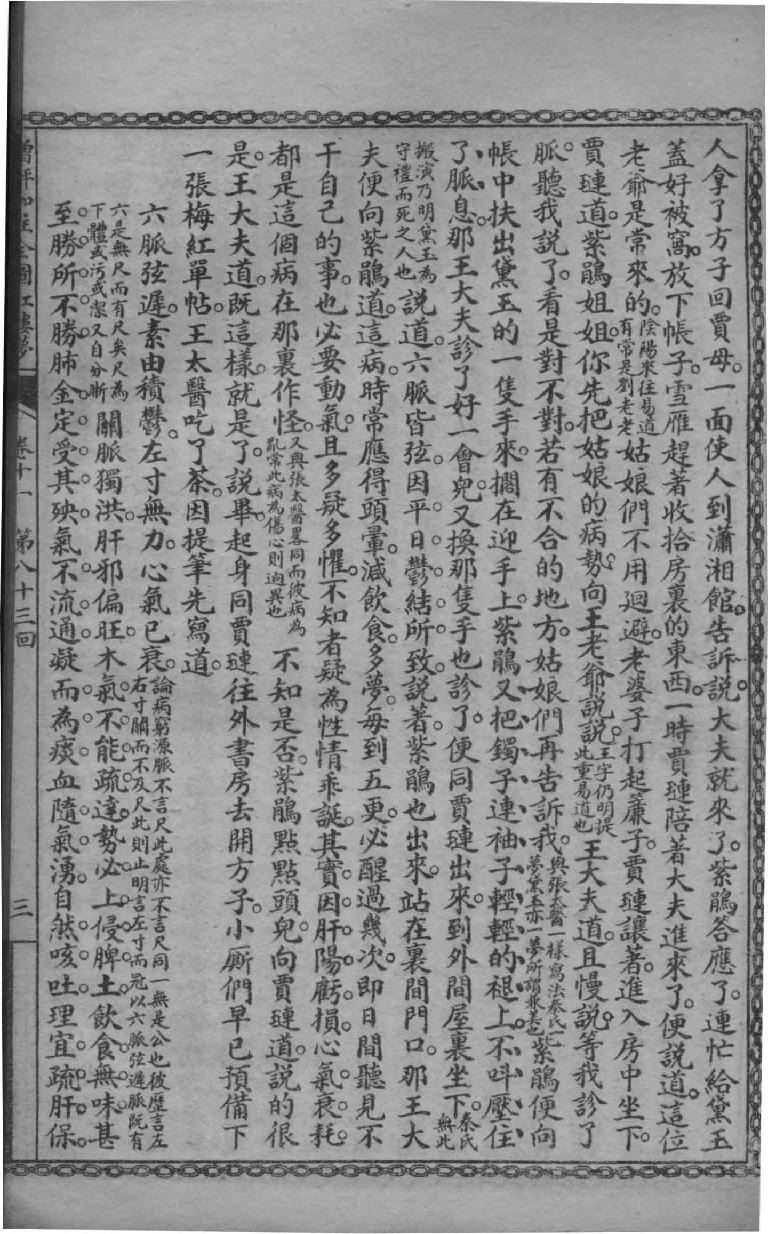 人拿了方子回賈母。一面使人到瀟湘館告訴說大夫就來了。紫鵑答應了。連忙給黛玉
蓋好被窩放下帳子。雪雁趕著收拾房裏的東西。一時賈璉陪著大夫進來了。便說道。這位
老爺是常來的。陰陽來往易道有常是劉老老姑娘們不用迴避。老婆子打起簾子。賈璉讓著。進入房中坐下。
賈璉道。紫鵑姐姐你先把姑娘的病勢向王老爺說說。王字仍明提此重易道也王大夫道。且慢說。等我診了
脈。聽我說了。看是對不對。若有不合的地方。姑娘們再告訴我。與張太醫一樣寫法秦氏一夢黛玉亦一夢所謂兼美也紫鵑便向
帳中扶出黛玉的一隻手來。擱在迎手上。紫鵑又把鐲子連袖子輕輕的褪上。不叫壓住
了脈息。那王大夫診了好一會兒。又換那隻手也診了。便同賈璉出來。到外間屋裏坐下。秦氏無此
搬演乃明黛玉為守禮而死之人也說道。六脈皆弦。因平日鬱結所致。說著。紫鵑也出來。站在裏間門口。那王大
夫便向紫鵑道。這病。時常應得頭暈。減飲食。多夢。每到五更。必醒過幾次。即日間聽見不
干自己的事。也必要動氣。且多疑多懼。不知者疑為性情乖誕。其實因肝陽虧損。心氣衰耗。
都是這個病在那裏作怪。又與張太醫畧同而彼病為亂常此病為傷心則逈異也不知是否。紫鵑點點頭兒。向賈璉道。說的很
是。王大夫道。既這樣。就是了。說畢。起身同賈璉往外書房去開方子。小厮們早已預備下
一張梅紅單帖。王太醫吃了茶。因提筆先寫道。
六脈弦遲。素由積鬱。左寸無力。心氣已衰。論病窮源脈不言尺此處亦不言尺同一無是公也彼歷言左右寸關而不及尺此則止明言左寸而冠以六脈弦遲脈既有
六是無尺而有尺矣尺為下體或污或潔又自分晰關脈獨洪。肝邪偏旺。木氣不能疏達。勢必上侵脾土。飲食無味。甚
至勝所不勝。肺金定受其殃。氣不流通。凝而為痰。血隨氣湧。自然咳吐。理宜疏肝保
卷十一 第八十三回
三